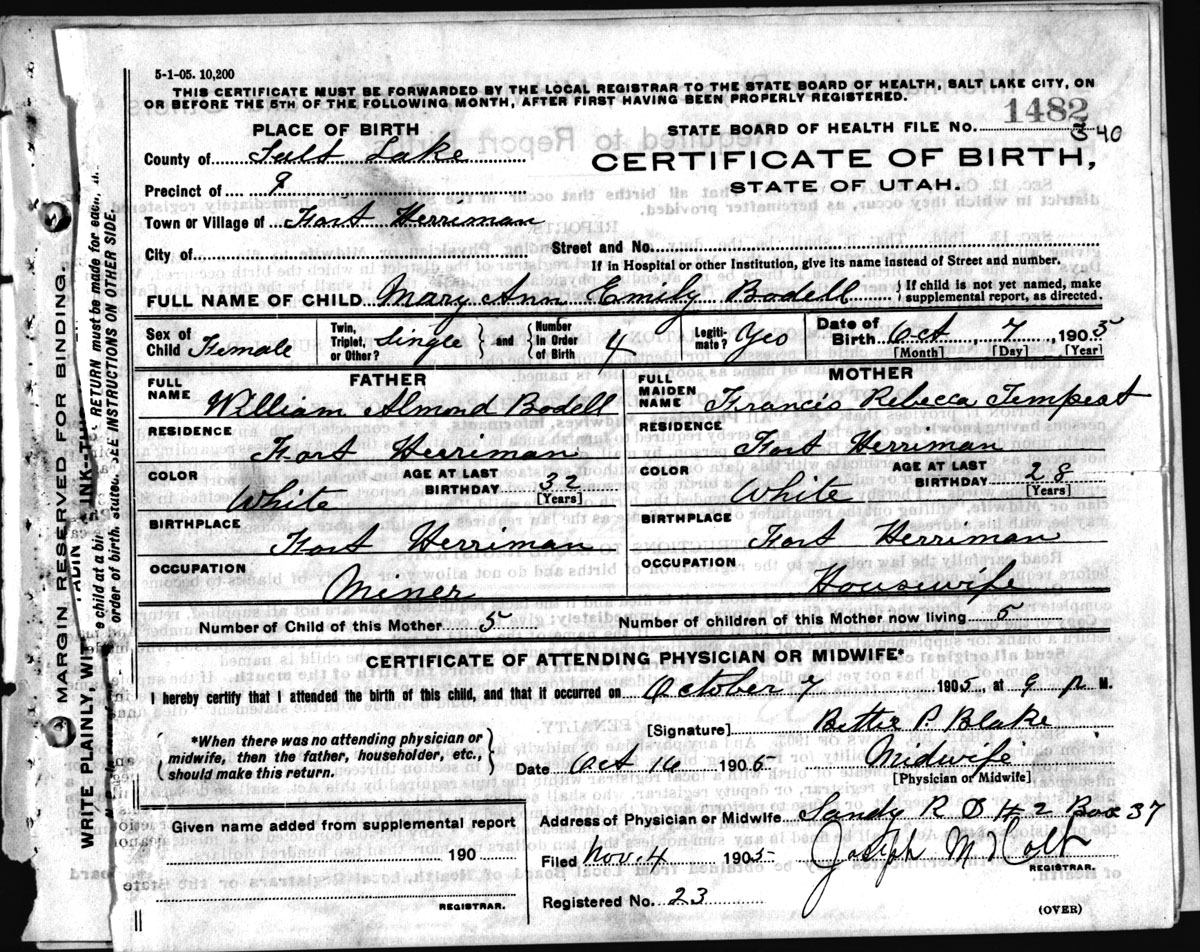 5-1-05. 10,200
THIS CERTIFICATE MUST BE FORWARDED BY THE LOCAL REGISTRAR TO THE STATE BOARD OF HEALTH, SALT LAKE CITY, ON
OR BEFORE THE 5TH OF THE FOLLOWING MONTH, AFTER FIRST HAVING BEEN PROPERLY REGISTERED.
PLACE OF BIRTH
STATE BOARD OF HEALTH FILE NO. 1482
40
County of Salt Lake
CERTIFICATE OF BIRTH,
STATE OF UTAH.
Precinct of 9
Town or Village of Fort Herriman
City of Street and No.
If in Hospital or other Institution, give its name instead of Street and number.
FULL NAME OF CHILD Mary Ann Emily Bodell } If child is not yet named, make
supplemental report, as directed.
Sex of Child Female Twin, Triplet, or Other? Single } and { Number in Order of Birth 4 Legiti-mate? Yes Date of Birth Oct, 7, 1905
[Month] [Day] [Year]
FATHER
FULL NAME William Almond Bodell
RESIDENCE
Fort Herriman
COLOR White AGE AT LAST BIRTHDAY 32
[Years]
BIRTHPLACE
Fort Herriman
OCCUPATION
Miner
MOTHER
FULL MAIDEN NAME Francis Rebecca Tempest
RESIDENCE
Fort Herriman
COLOR White AGE AT LAST BIRTHDAY 28
[Years]
BIRTHPLACE
Fort Herriman
OCCUPATION
Housewife
Number of Child of this Mother 5 Number of children of this Mother now living 5
CERTIFICATE OF ATTENDING PHYSICIAN OR MIDWIFE*
I hereby certify that I attended the birth of this child, and that it occurred on October 7 1905, at 9 P M.
{ *When there was no attending physician or
midwife, then the father, householder, etc.,
should make this return. }
[Signature] Bettie P. Blake
Date Oct 16 1905 Midwife
[Physician or Midwife]
Given name added from supplemental report
190
REGISTRAR.
Address of Physician or Midwife Sandy R D # 2 Box 37
Filed Nov. 4 1905 Joseph M Holt
REGISTRAR.
Registered No. 23
(OVER)
MARGIN RESERVED FOR BINDING.
WRITE PLAINLY, WIT FADIN INK--THIS
RETURN must be made for each,
child at a bi
order of birth, stated. SEE INSTRUCTIONS ON OTHER SIDE.